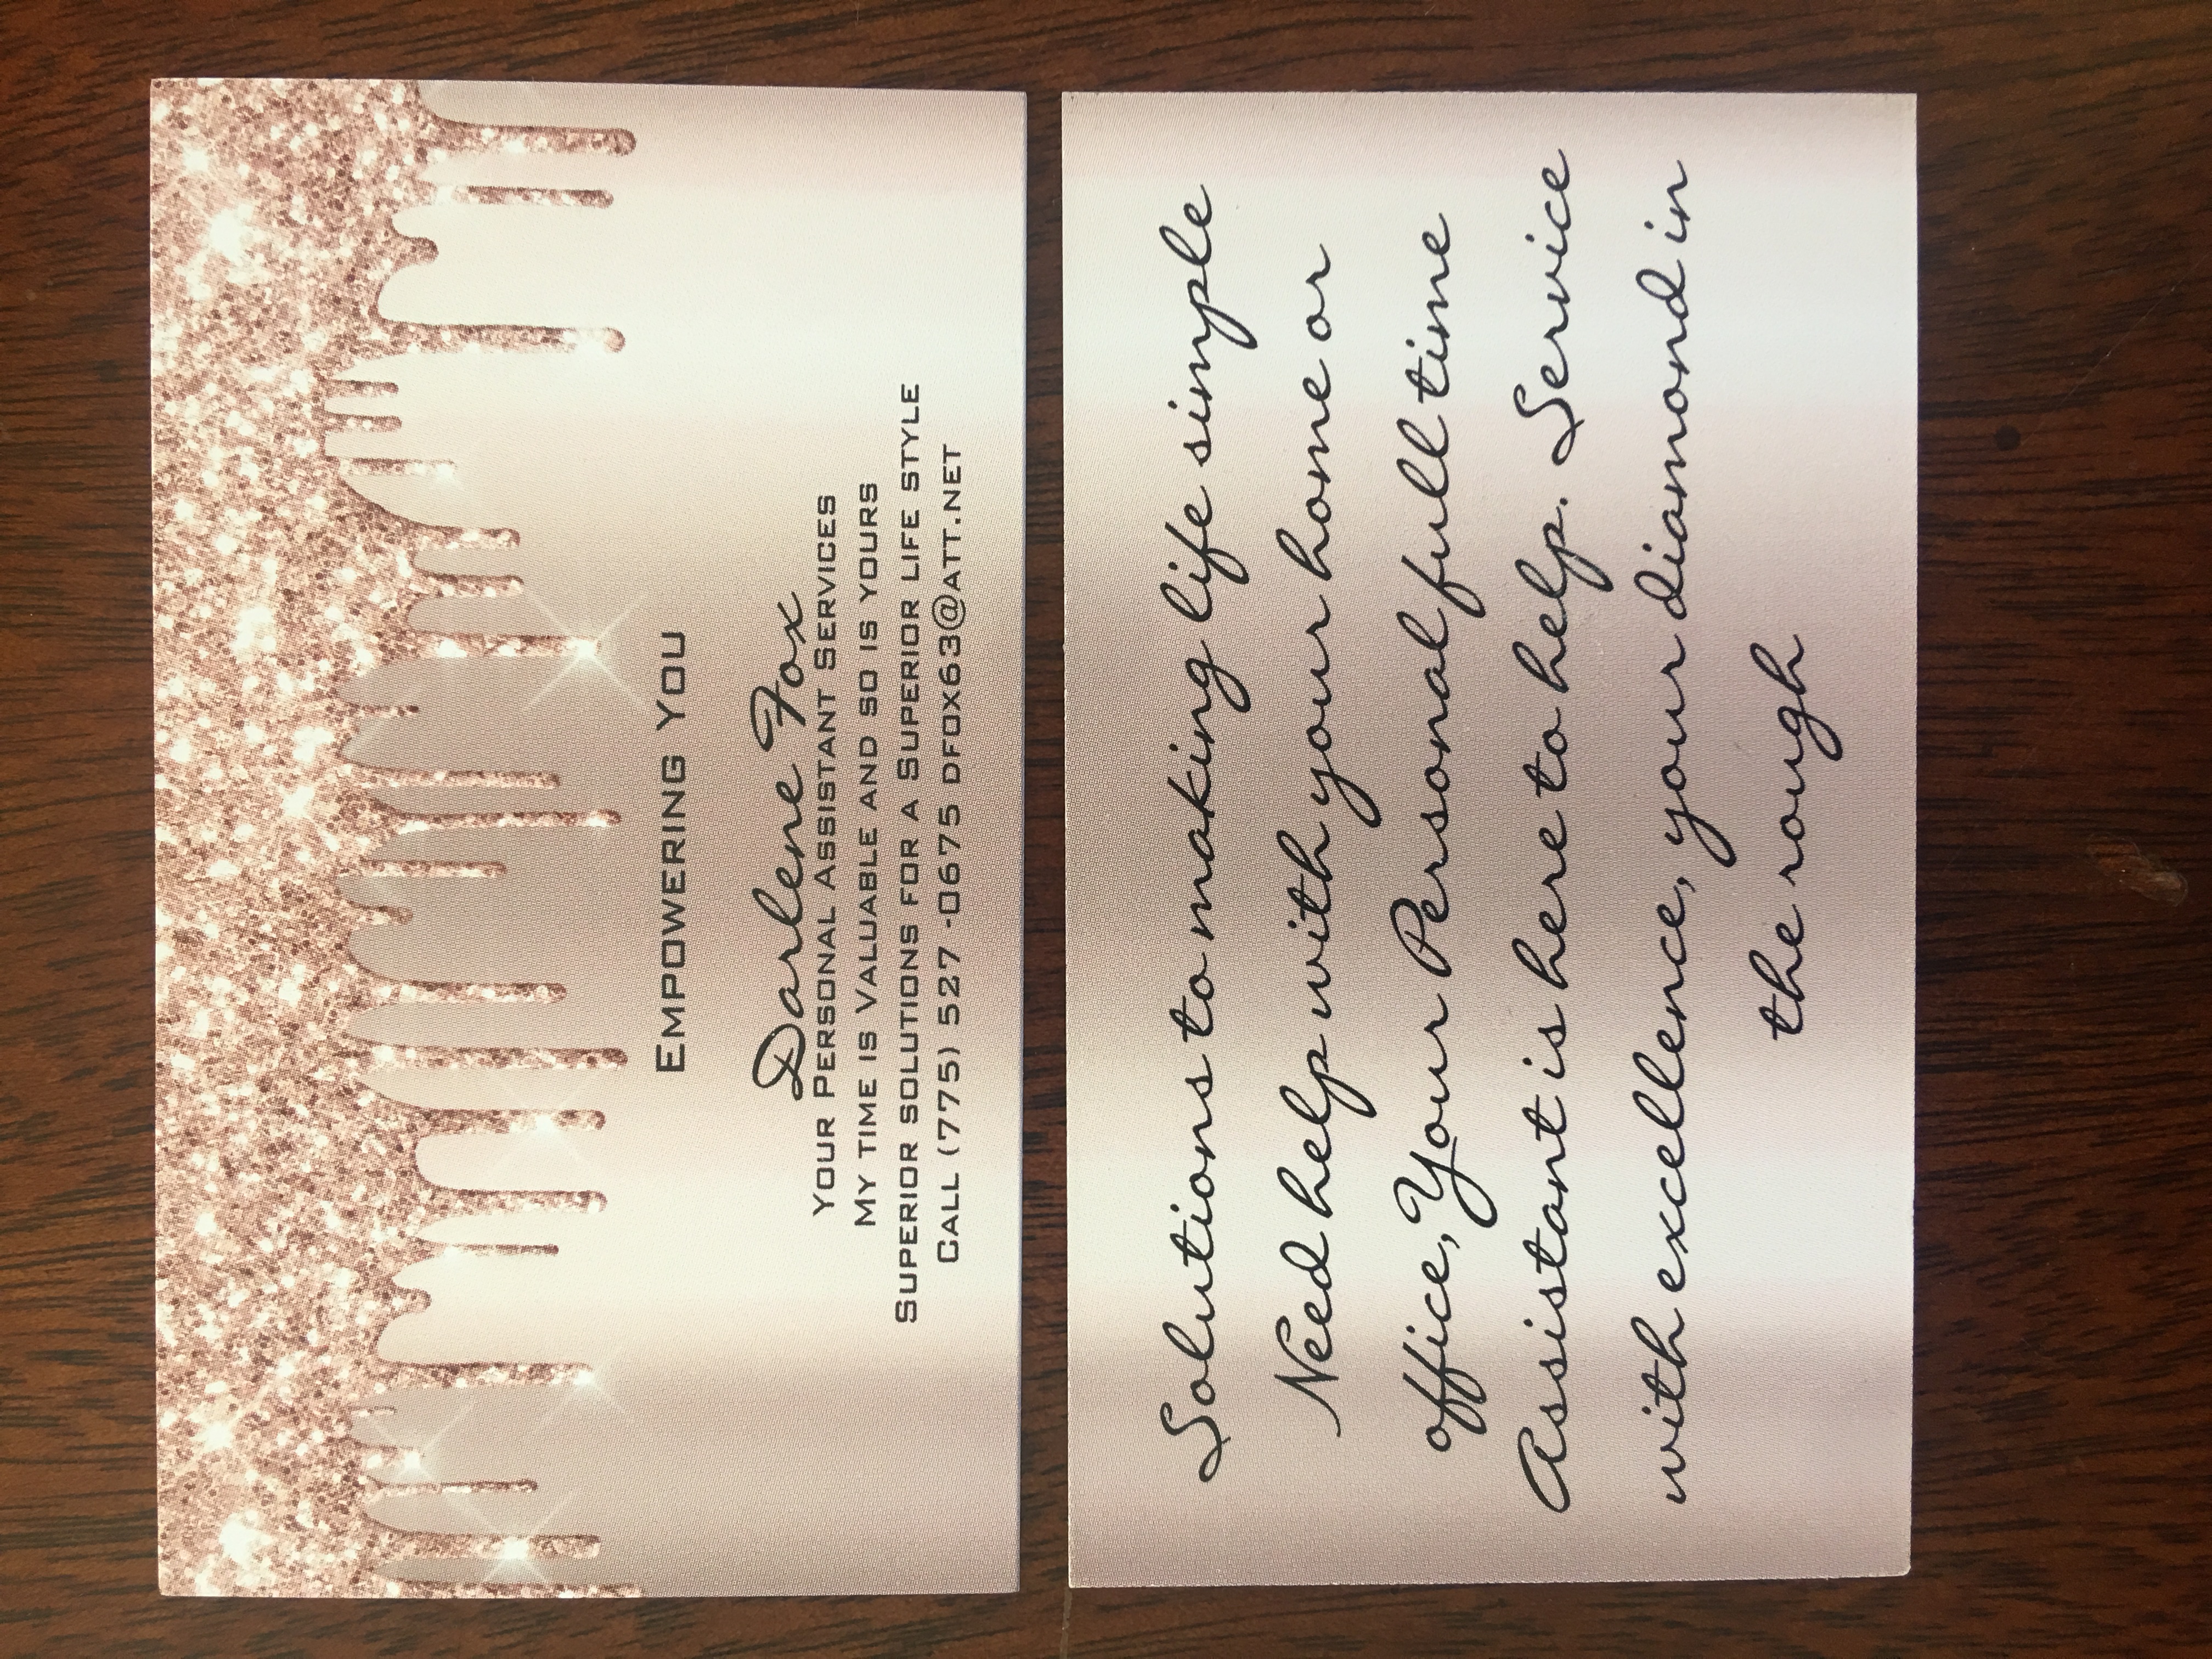 Empowering You
Darlene Fox
Your Personal Assistant Services
My time is Valuable and so is yours
Superior solutions for a Superior life style
Call (775) 527 -0675 dfox63@att.net
Solutions to making life simple
Need help with your home or
office, Your Personal full time
Assistant is here to help. Service
with excellence, your diamond in
the rough